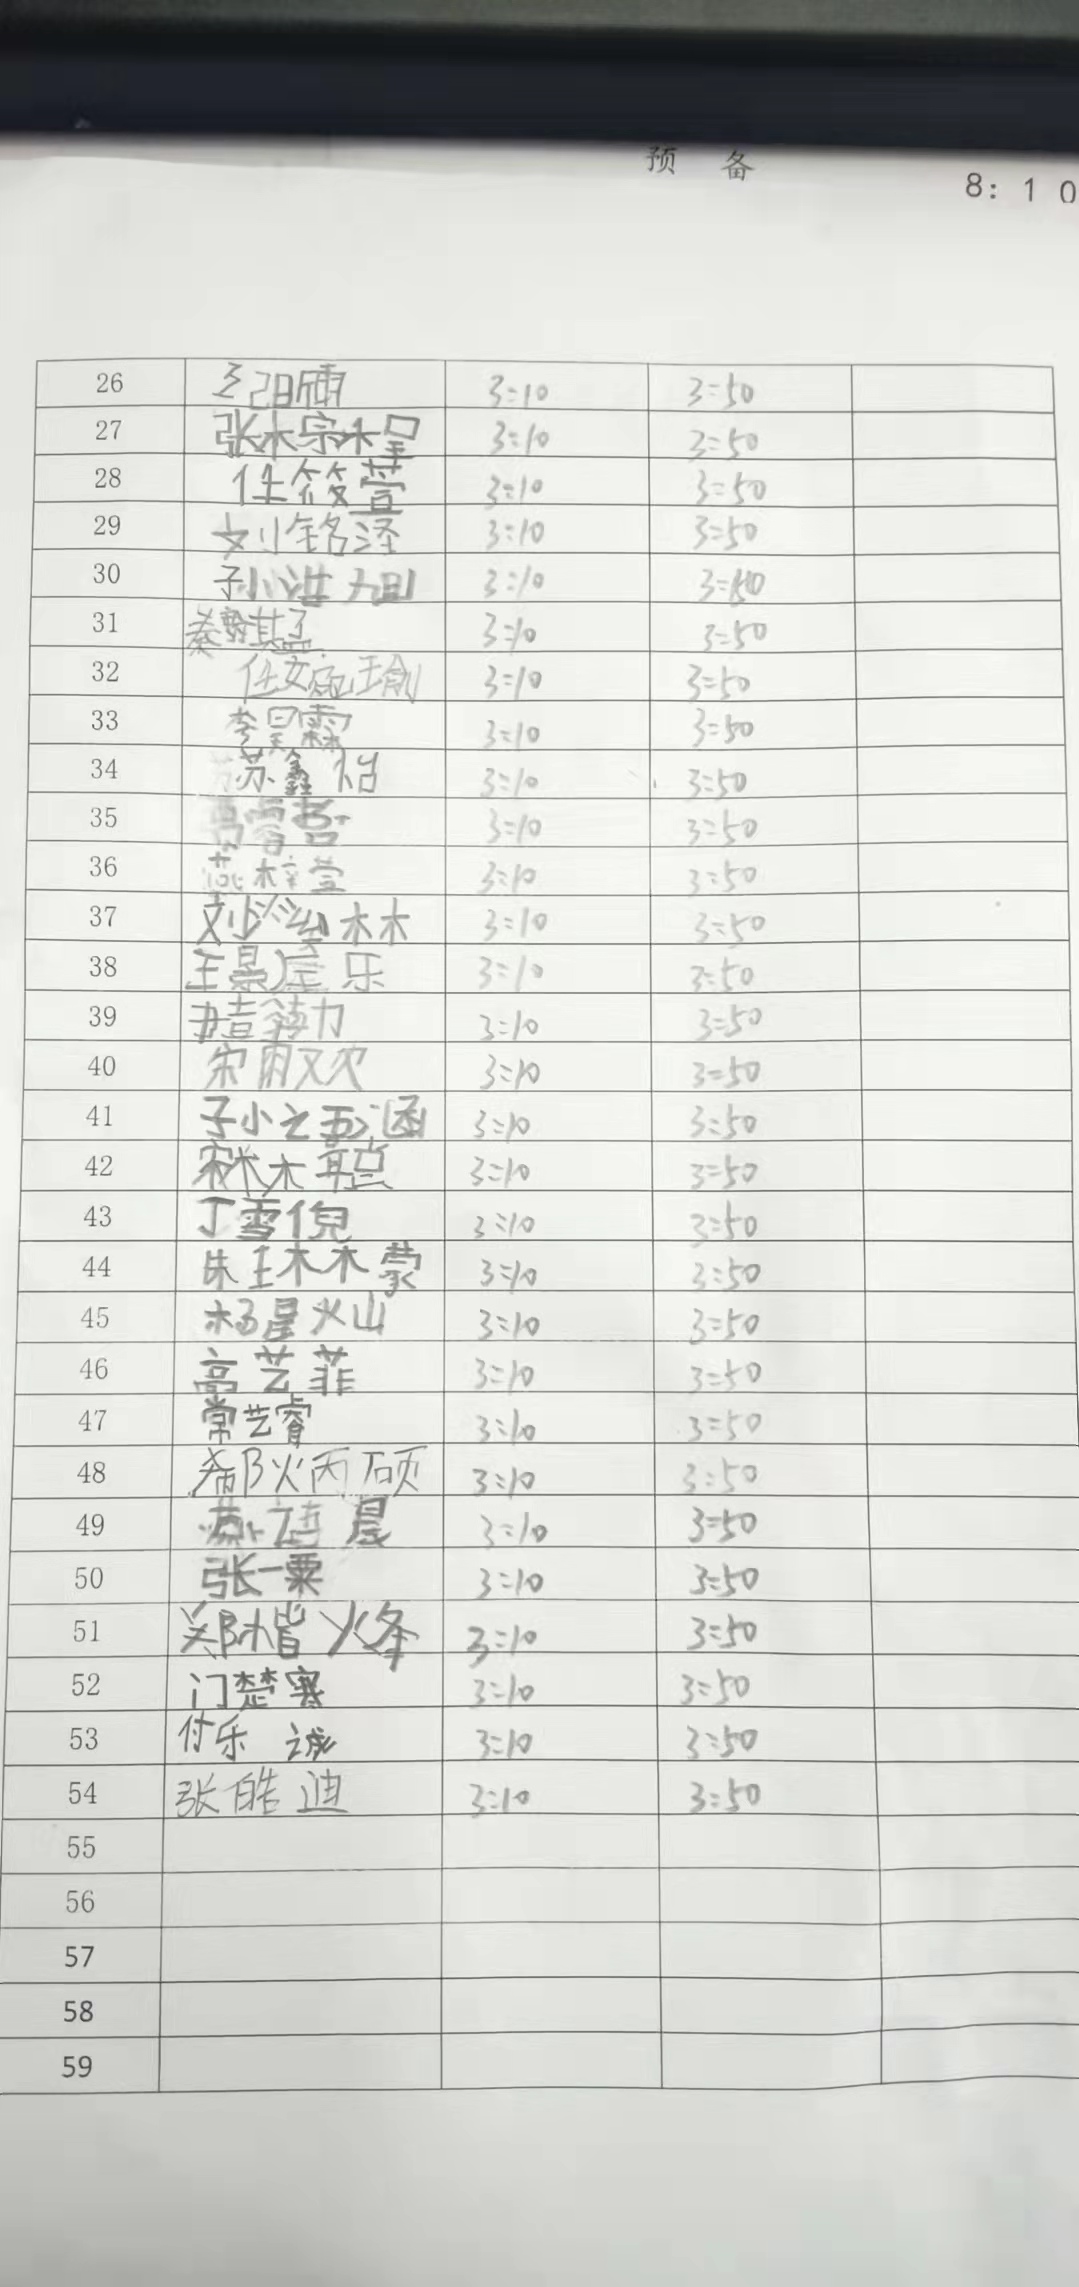 预 备
8：10
26 3:10 3:50
27 张木宗木呈 3:10 3:50
28 任筱萱 3:10 3:50
29 刘铭泽 3:10 3:50
30 3:10 3:50
31 秦 3:10 3:50
32 任文 瑜 3:10 3:50
33 李昊霖 3:10 3:50
34 苏鑫怡 3:10 3:50
35 3:10 3:50
36 燕梓萱 3:10 3:50
37 刘 木木 3:10 3:50
38 王景 乐 3:10 3:50
39 3:10 3:50
40 宋雨欢 3:10 3:50
41 涵 3:10 3:50
42 3:10 3:50
43 丁雪倪 3:10 3:50
44 朱王木木蒙 3:10 3:50
45 杨星火山 3:10 3:50
46 高艺菲 3:10 3:50
47 常艺睿 3:10 3:50
48 火丙硕 3:10 3:50
49 晨 3:10 3:50
50 张一粟 3:10 3:50
51 郑楷烽 3:10 3:50
52 门楚寒 3:10 3:50
53 付乐诚 3:10 3:50
54 张皓迪 3:10 3:50
55
56
57
58
59